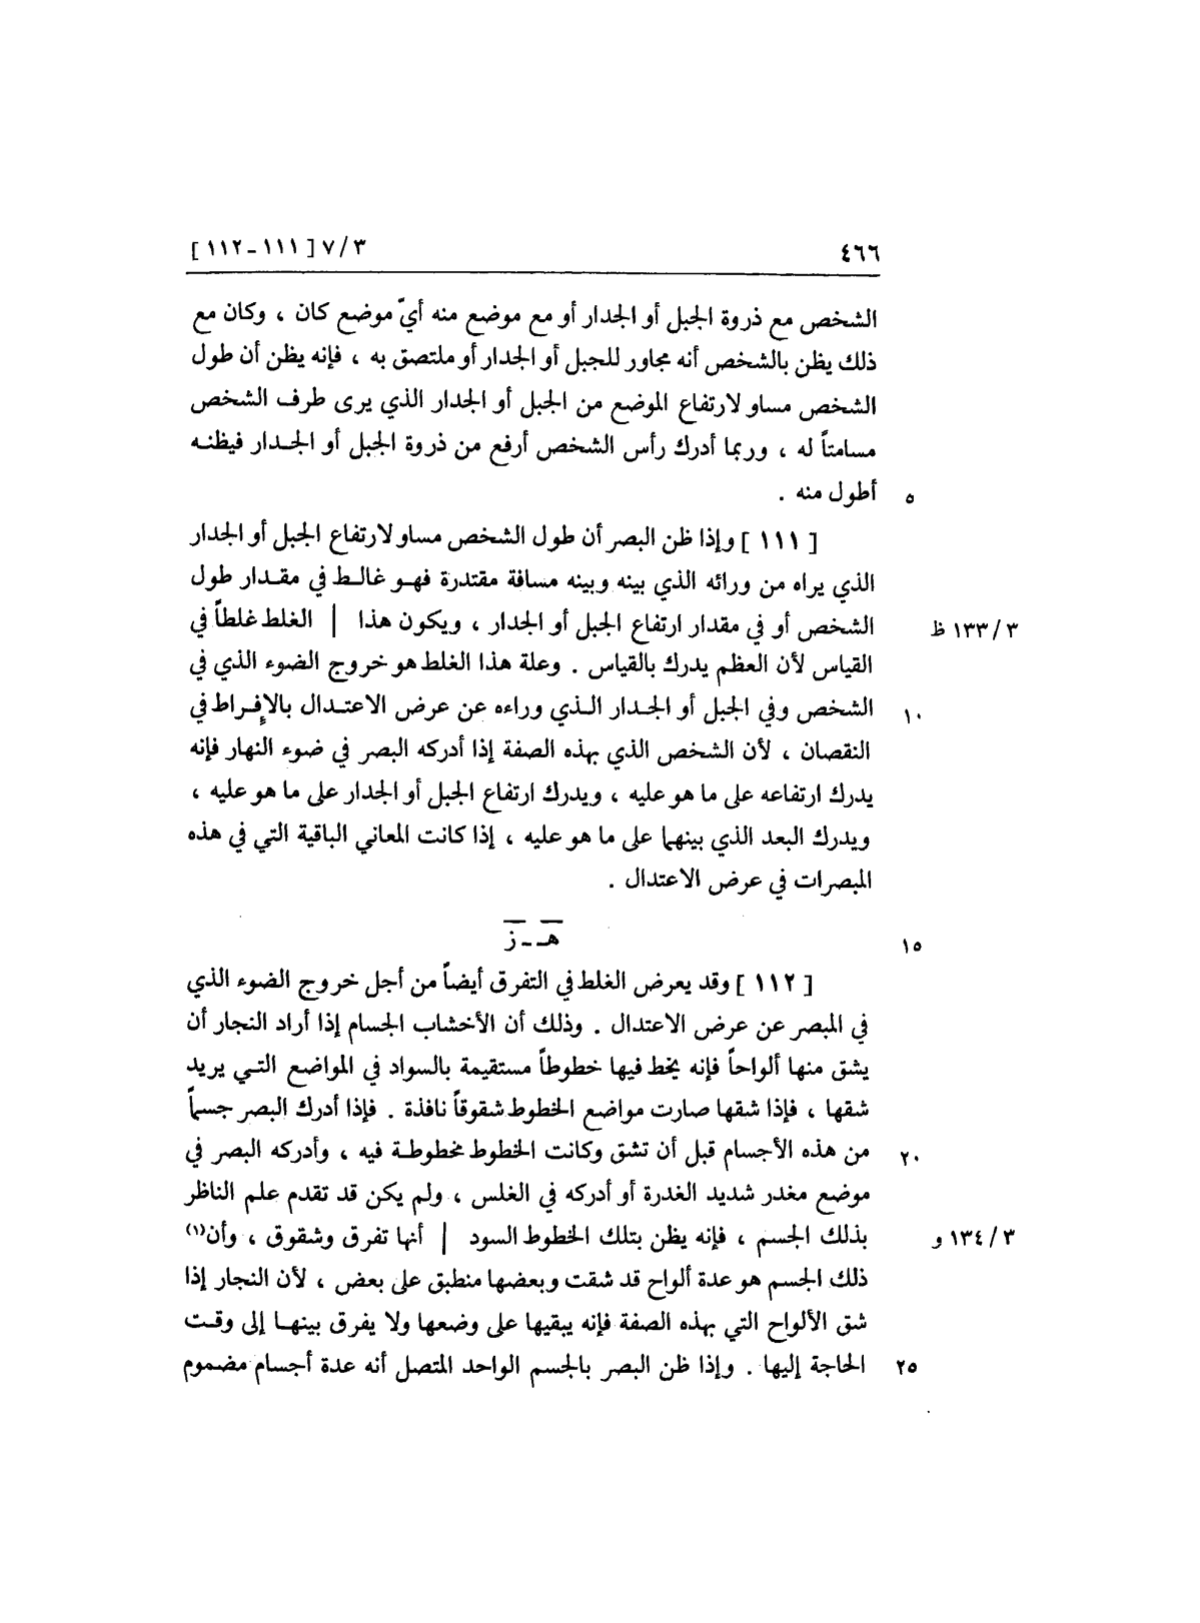 ٤٦٦
٣/٧ [ ١١١-١١٢ ]
الشخص مع ذروة الجبل أو الجدار أو مع موضع منه أيّ موضع كان ، وكان مع
ذلك يظن بالشخص أنه مجاور للجبل أو الجدار أو ملتصق به ، فإنه يظن أن طول
الشخص مساو لارتفاع الموضع من الجبل أو الجدار الذي يرى طرف الشخص
مسامتاً له ، وربما أدرك رأس الشخص أرفع من ذروة الجبل أو الجدار فيظنه
أطول منه . ٥
[ ١١١ ] وإذا ظن البصر أن طول الشخص مساو لارتفاع الجبل أو الجدار
الذي يراه من ورائه الذي بينه وبينه مسافة مقتدرة فهو غالط في مقدار طول
الشخص أو في مقدار ارتفاع الجبل أو الجدار ، ويكون هذا | الغلط غلطاً في ٣/١٣٣ ظ
القياس لأن العظم يدرك بالقياس . وعلة هذا الغلط هو خروج الضوء الذي في
الشخص وفي الجبل أو الجدار الذي وراءه عن عرض الاعتدال بالإفراط في ١٠
النقصان ، لأن الشخص الذي بهذه الصفة إذا أدركه البصر في ضوء النهار فإنه
يدرك ارتفاعه على ما هو عليه ، ويدرك ارتفاع الجبل أو الجدار على ما هو عليه ،
ويدرك البعد الذي بينهما على ما هو عليه ، إذا كانت المعاني الباقية التي في هذه
المبصرات في عرض الاعتدال .
هـ - ز ١٥
[ ١١٢ ] وقد يعرض الغلط في التفرق أيضاً من أجل خروج الضوء الذي
في المبصر عن عرض الاعتدال . وذلك أن الأخشاب الجسام إذا أراد النجار أن
يشق منها ألواحاً فإنه يخط فيها خطوطاً مستقيمة بالسواد في المواضع التي يريد
شقها ، فإذا شقها صارت مواضع الخطوط شقوقاً نافذة . فإذا أدرك البصر جسماً
من هذه الأجسام قبل أن تشق وكانت الخطوط مخطوطة فيه ، وأدركه البصر في ٢٠
موضع مغدر شديد الغدرة أو أدركه في الغلس ، ولم يكن قد تقدم علم الناظر
بذلك الجسم ، فإنه يظن بتلك الخطوط السود | أنها تفرق وشقوق ، وأن(١) ٣/١٣٤ و
ذلك الجسم هو عدة ألواح قد شقت وبعضها منطبق على بعض ، لأن النجار إذا
شق الألواح التي بهذه الصفة فإنه يبقيها على وضعها ولا يفرق بينها إلى وقت
الحاجة إليها . وإذا ظن البصر بالجسم الواحد المتصل أنه عدة أجسام مضموم ٢٥